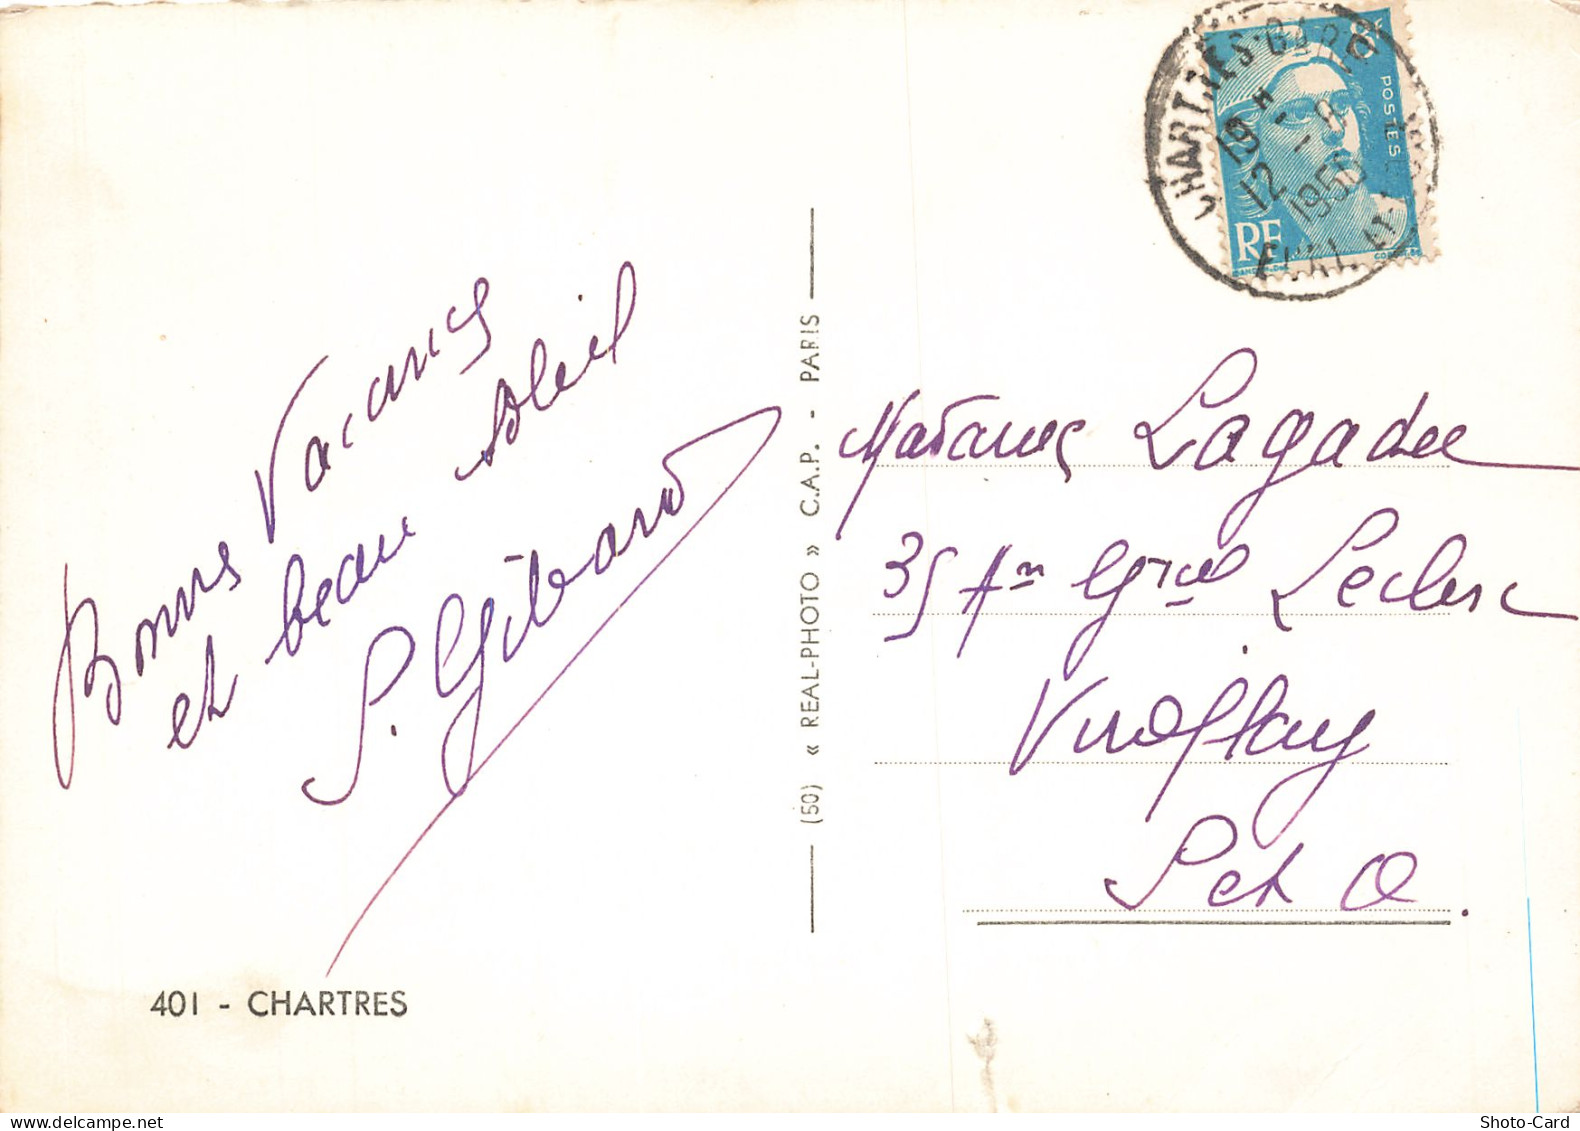 Bonnes Vacances
et beau soleil
S. Gibard
401 - CHARTRES
(50) « REAL-PHOTO » C.A.P. - PARIS
CHARTRES-GARE
19 H
12 - 8
1950
EURE ET
8F
POSTES
RF
Madame Lagadec
35 Av Gral Leclerc
Viroflay
S et O.
Shoto-Card